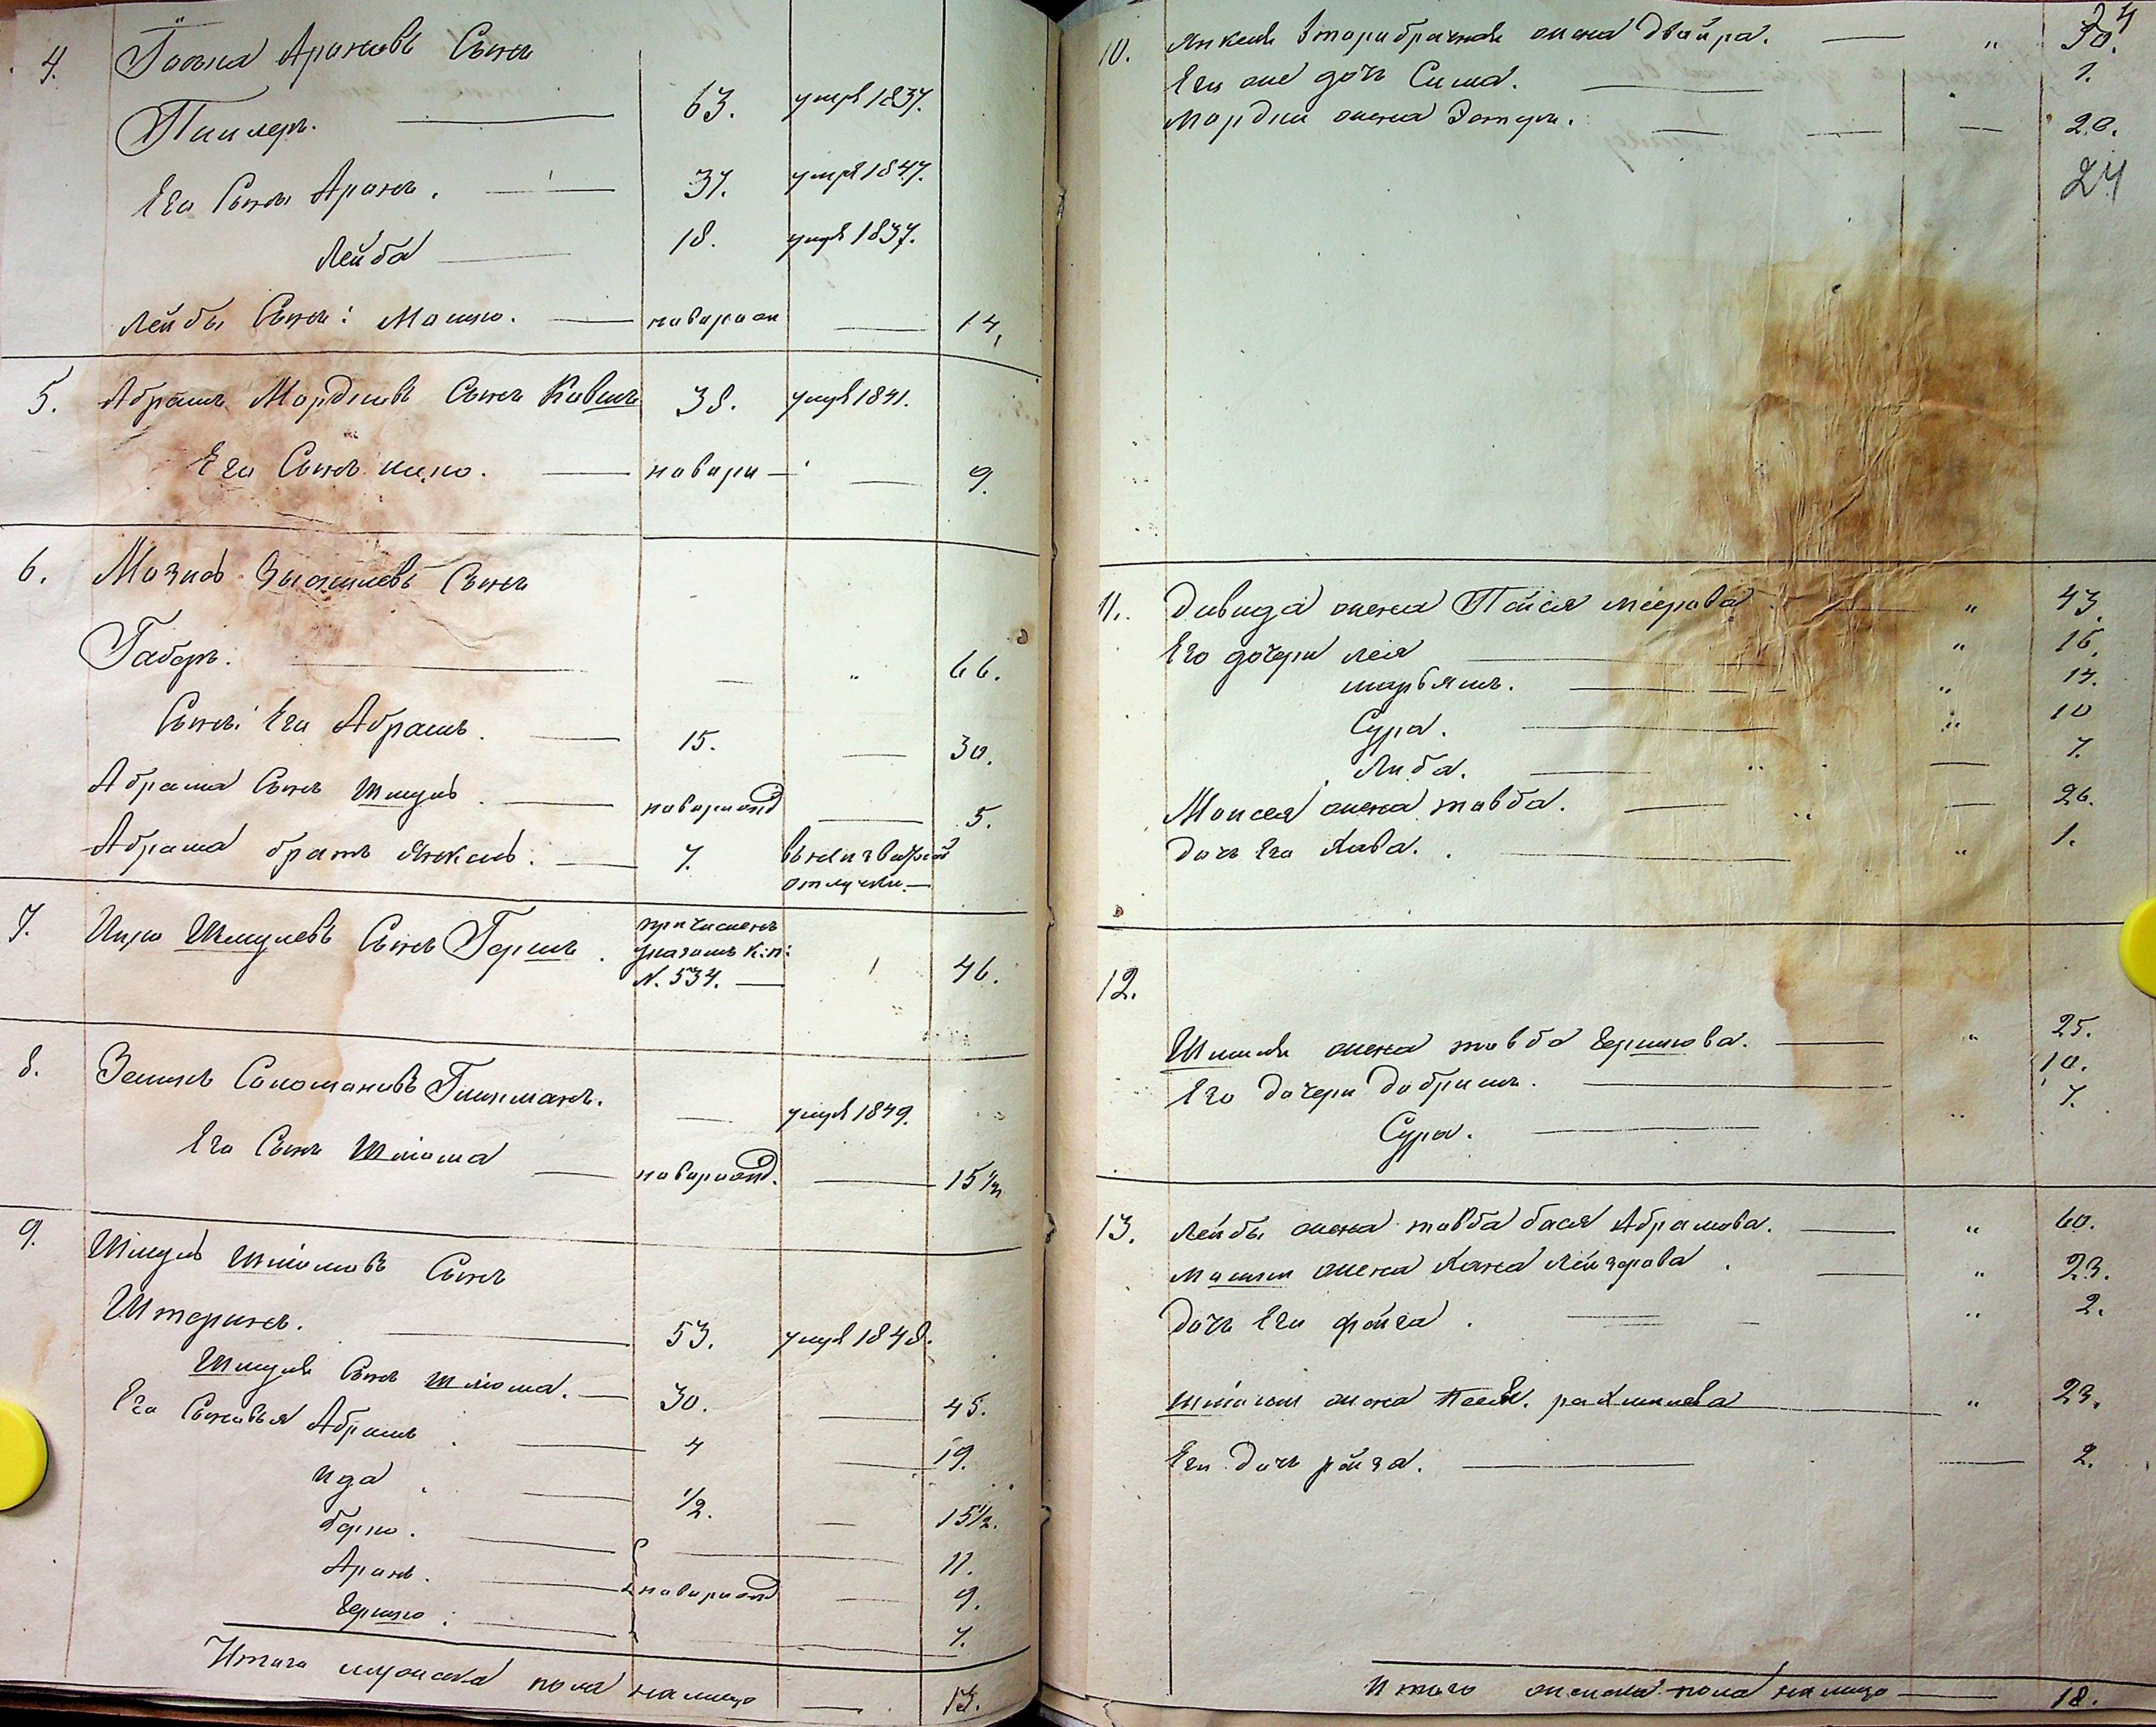 4. Іосіа Ароновъ Сынъ
Пинлеръ. — 63. умре 1837.
Его Сынъ Аронъ. — 37. умре 1847.
Лейба — 18. умре 1837.
Лейбы Сынъ: Мошко. — новорож — 14.
5. Абрамъ Мордковъ Сынъ 38. умре 1841.
Его Сынъ Ицко. — новоро — — 9.
6. Сынъ
— „ 66.
Сынъ Его Абрамъ. — 15. — 30.
Абрама Сынъ Шмуль. — новорожд — 5.
Абрама братъ Янкель. — 7.
отлучки. —
7. Ицко Шмулевъ Сынъ Гершъ. причисленъ
указомъ К: П:
N. 534. — 46.
8. Зельманъ Соломоновъ — умре 1849.
Его Сынъ Шліома — новорожд. — 15 1/2
9. Шмуль Шліомовъ Сынъ
Штеринъ. — 53. умре 1848.
Шмуля Сынъ Шліома. — 30. — 45.
Его Сыновья Абрамъ. — 4 — 19.
Юда. — 1/2. — 15 1/2.
Берко. — — 11.
Аронъ. — новорожд — 9.
Гершко. — — 7.
Итого мужска пола налицо — 13.
4
10. Янкеля второбрачная жена Двойра. — „ 30.
Его же дочь Сима. — 1.
Мордки жена Эстеръ. — — — 20.
24
11. Давида жена Пейся Меерова — „ 43.
Его дочери Лея — „ 16.
Марьямъ. — „ 14.
Сура. — „ 10
Либа. — „ — 7.
Моисея жена Товба. — „ — 26.
Дочь Его Хава. — „ 1.
12.
Шмиля жена Товба Гершкова. — „ 25.
Его Дочери Добришъ. — 10.
Сура. — „ 7.
13. Лейбы жена Товба бася Абрамова. — „ 60.
Мошки жена Хана Лейзорова. — „ 23.
Дочь Его Фейга. — „ 2.
Шліомы жена Песя. Рахмилева — „ 23.
Его Дочь Ройза. — — 2.
Итого женска пола налицо — 18.